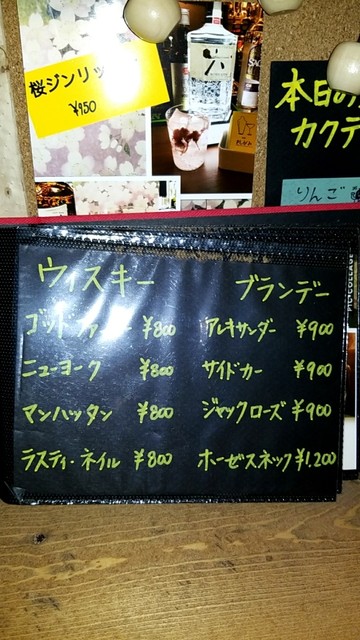 桜ジンリッキー
¥950
六
本日の
カクテ
りんご
ウィスキー
ゴッドファーザー ¥800
ニューヨーク ¥800
マンハッタン ¥800
ラスティ・ネイル ¥800
ブランデー
アレキサンダー ¥900
サイドカー ¥900
ジャックローズ ¥900
ホーゼスネック ¥1,200